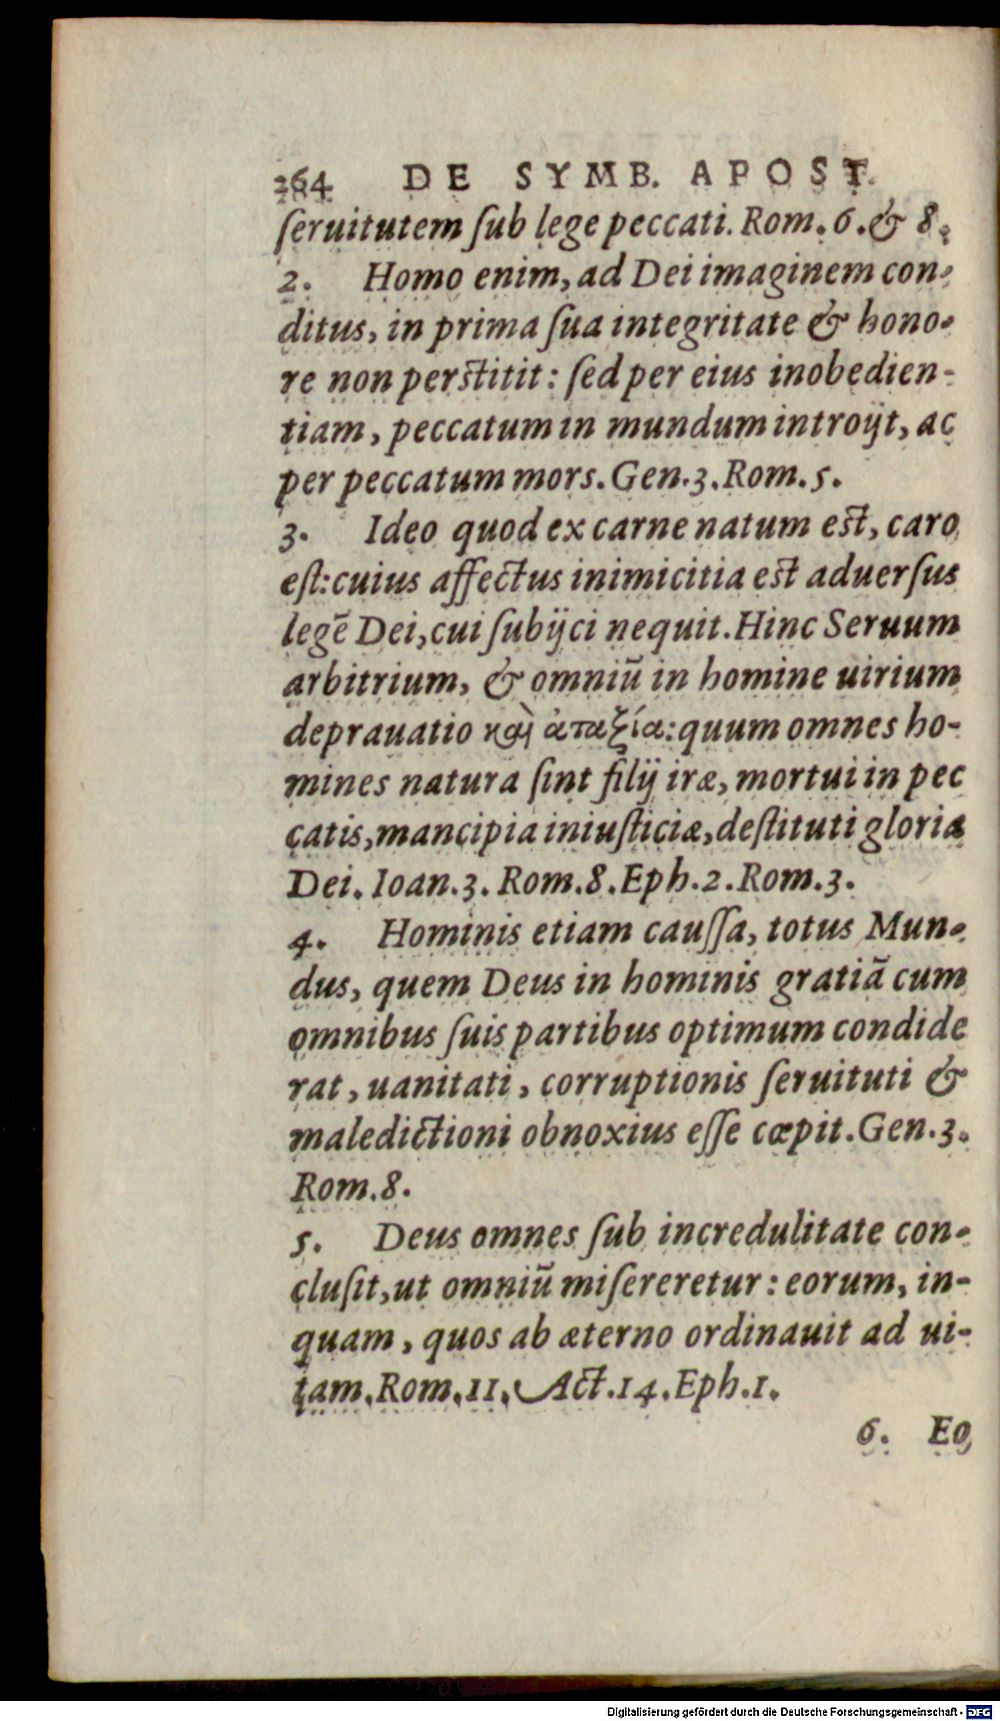 264 DE SYMB. APOST.
ſeruitutem ſub lege peccati. Rom. 6. & 8.
2. Homo enim, ad Dei imaginem con-
ditus, in prima ſua integritate & hono-
re non perstitit: ſed per eius inobedien-
tiam, peccatum in mundum introijt, ac
per peccatum mors. Gen. 3. Rom. 5.
3. Ideo quod ex carne natum est, caro
eſt: cuius affectus inimicitia est aduerſus
legē Dei, cui ſubijci nequit. Hinc Seruum
arbitrium, & omniū in homine uirium
deprauatio καὶ ἀταξία: quum omnes ho-
mines natura ſint filij iræ, mortui in pec
catis, mancipia iniuſticiæ, deſtituti gloria
Dei. Ioan. 3. Rom. 8. Eph. 2. Rom. 3.
4. Hominis etiam cauſſa, totus Mun-
dus, quem Deus in hominis gratiā cum
omnibus ſuis partibus optimum condide
rat, uanitati, corruptionis ſeruituti &
maledictioni obnoxius eſſe cœpit. Gen. 3.
Rom. 8.
5. Deus omnes ſub incredulitate con-
cluſit, ut omniū miſereretur: eorum, in-
quam, quos ab æterno ordinauit ad ui-
tam. Rom. 11. Act. 14. Eph. 1.
6. Eo
Digitalisierung gefördert durch die Deutsche Forschungsgemeinschaft - DFG